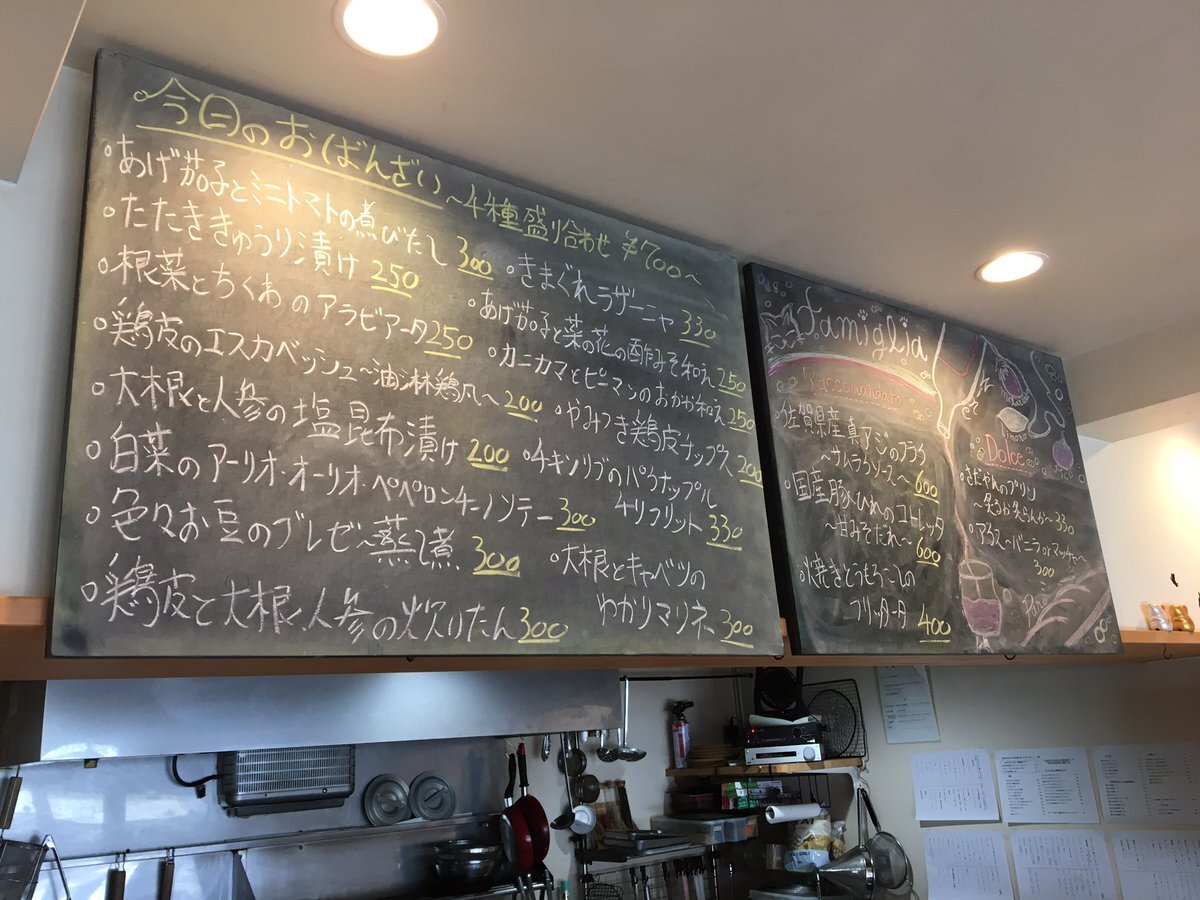 今日のおばんざい〜4種盛り合わせ ¥700〜
あげ茄子とミニトマトの煮びたし 300
たたききゅうり漬け 250
根菜とちくわのアラビアータ 250
鶏皮のエスカベッシュ〜油淋鶏風〜 200
大根と人参の塩昆布漬け 200
白菜のアーリオ・オーリオ・ペペロンチーノソテー 300
色々お豆のブレゼ〜蒸し煮 300
鶏皮と大根、人参の炊いたん 300
きまぐれラザーニャ 330
あげ茄子と菜の花の酢みそ和え 250
カニカマとピーマンのおかか和え 250
やみつき鶏皮チップス 200
チキンリブのパクナップル
チリフリット 330
大根とキャベツの
わかりマリネ 300
famiglia
Raccomandato
佐賀県産真アジのフライ
〜サムラうソース〜 600
国産豚ひれのコトレッタ
〜甘みそだれ〜 600
焼きとうもろこしの
フリッタータ 400
Dolce
さだやんのプリン
〜笑うか笑らんか〜 330
アイス〜バニラorマッチャ〜
300